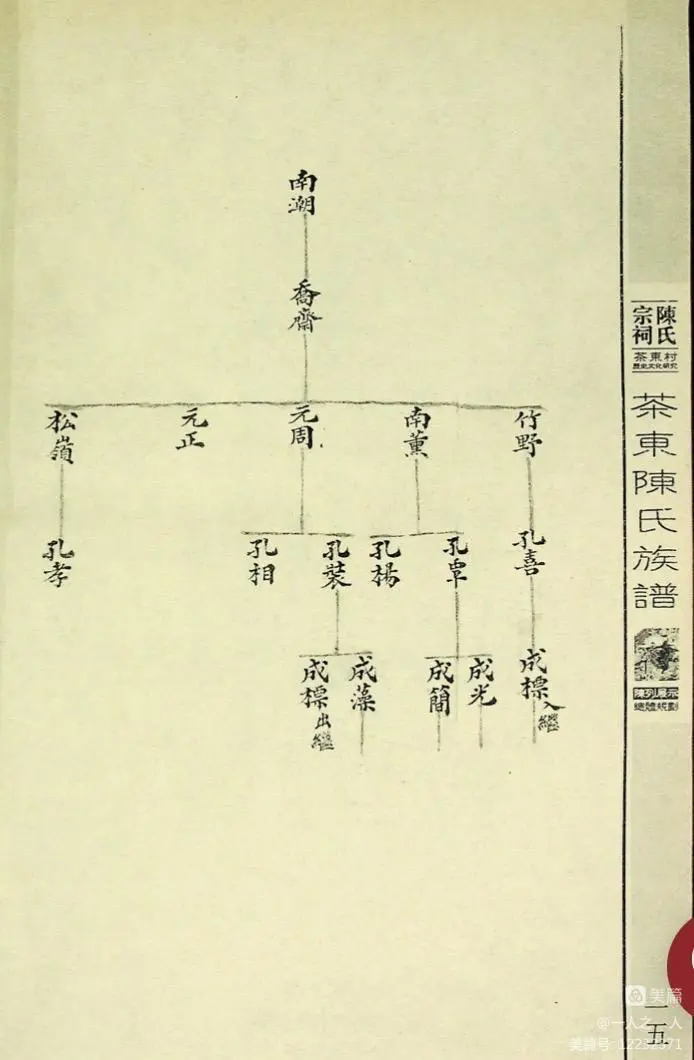 南潮
喬齋
竹野
南薰
元周
元正
松嶺
孔喜
孔㝉
孔楊
孔裝
孔相
孔孝
成標入繼
成光
成簡
成藻
成標出繼
陳氏
宗祠
茶東村
歷史文化研究
茶東陳氏族譜
陳列展示
總體規劃
一五
美篇
@一人之一人
美篇号 12232371